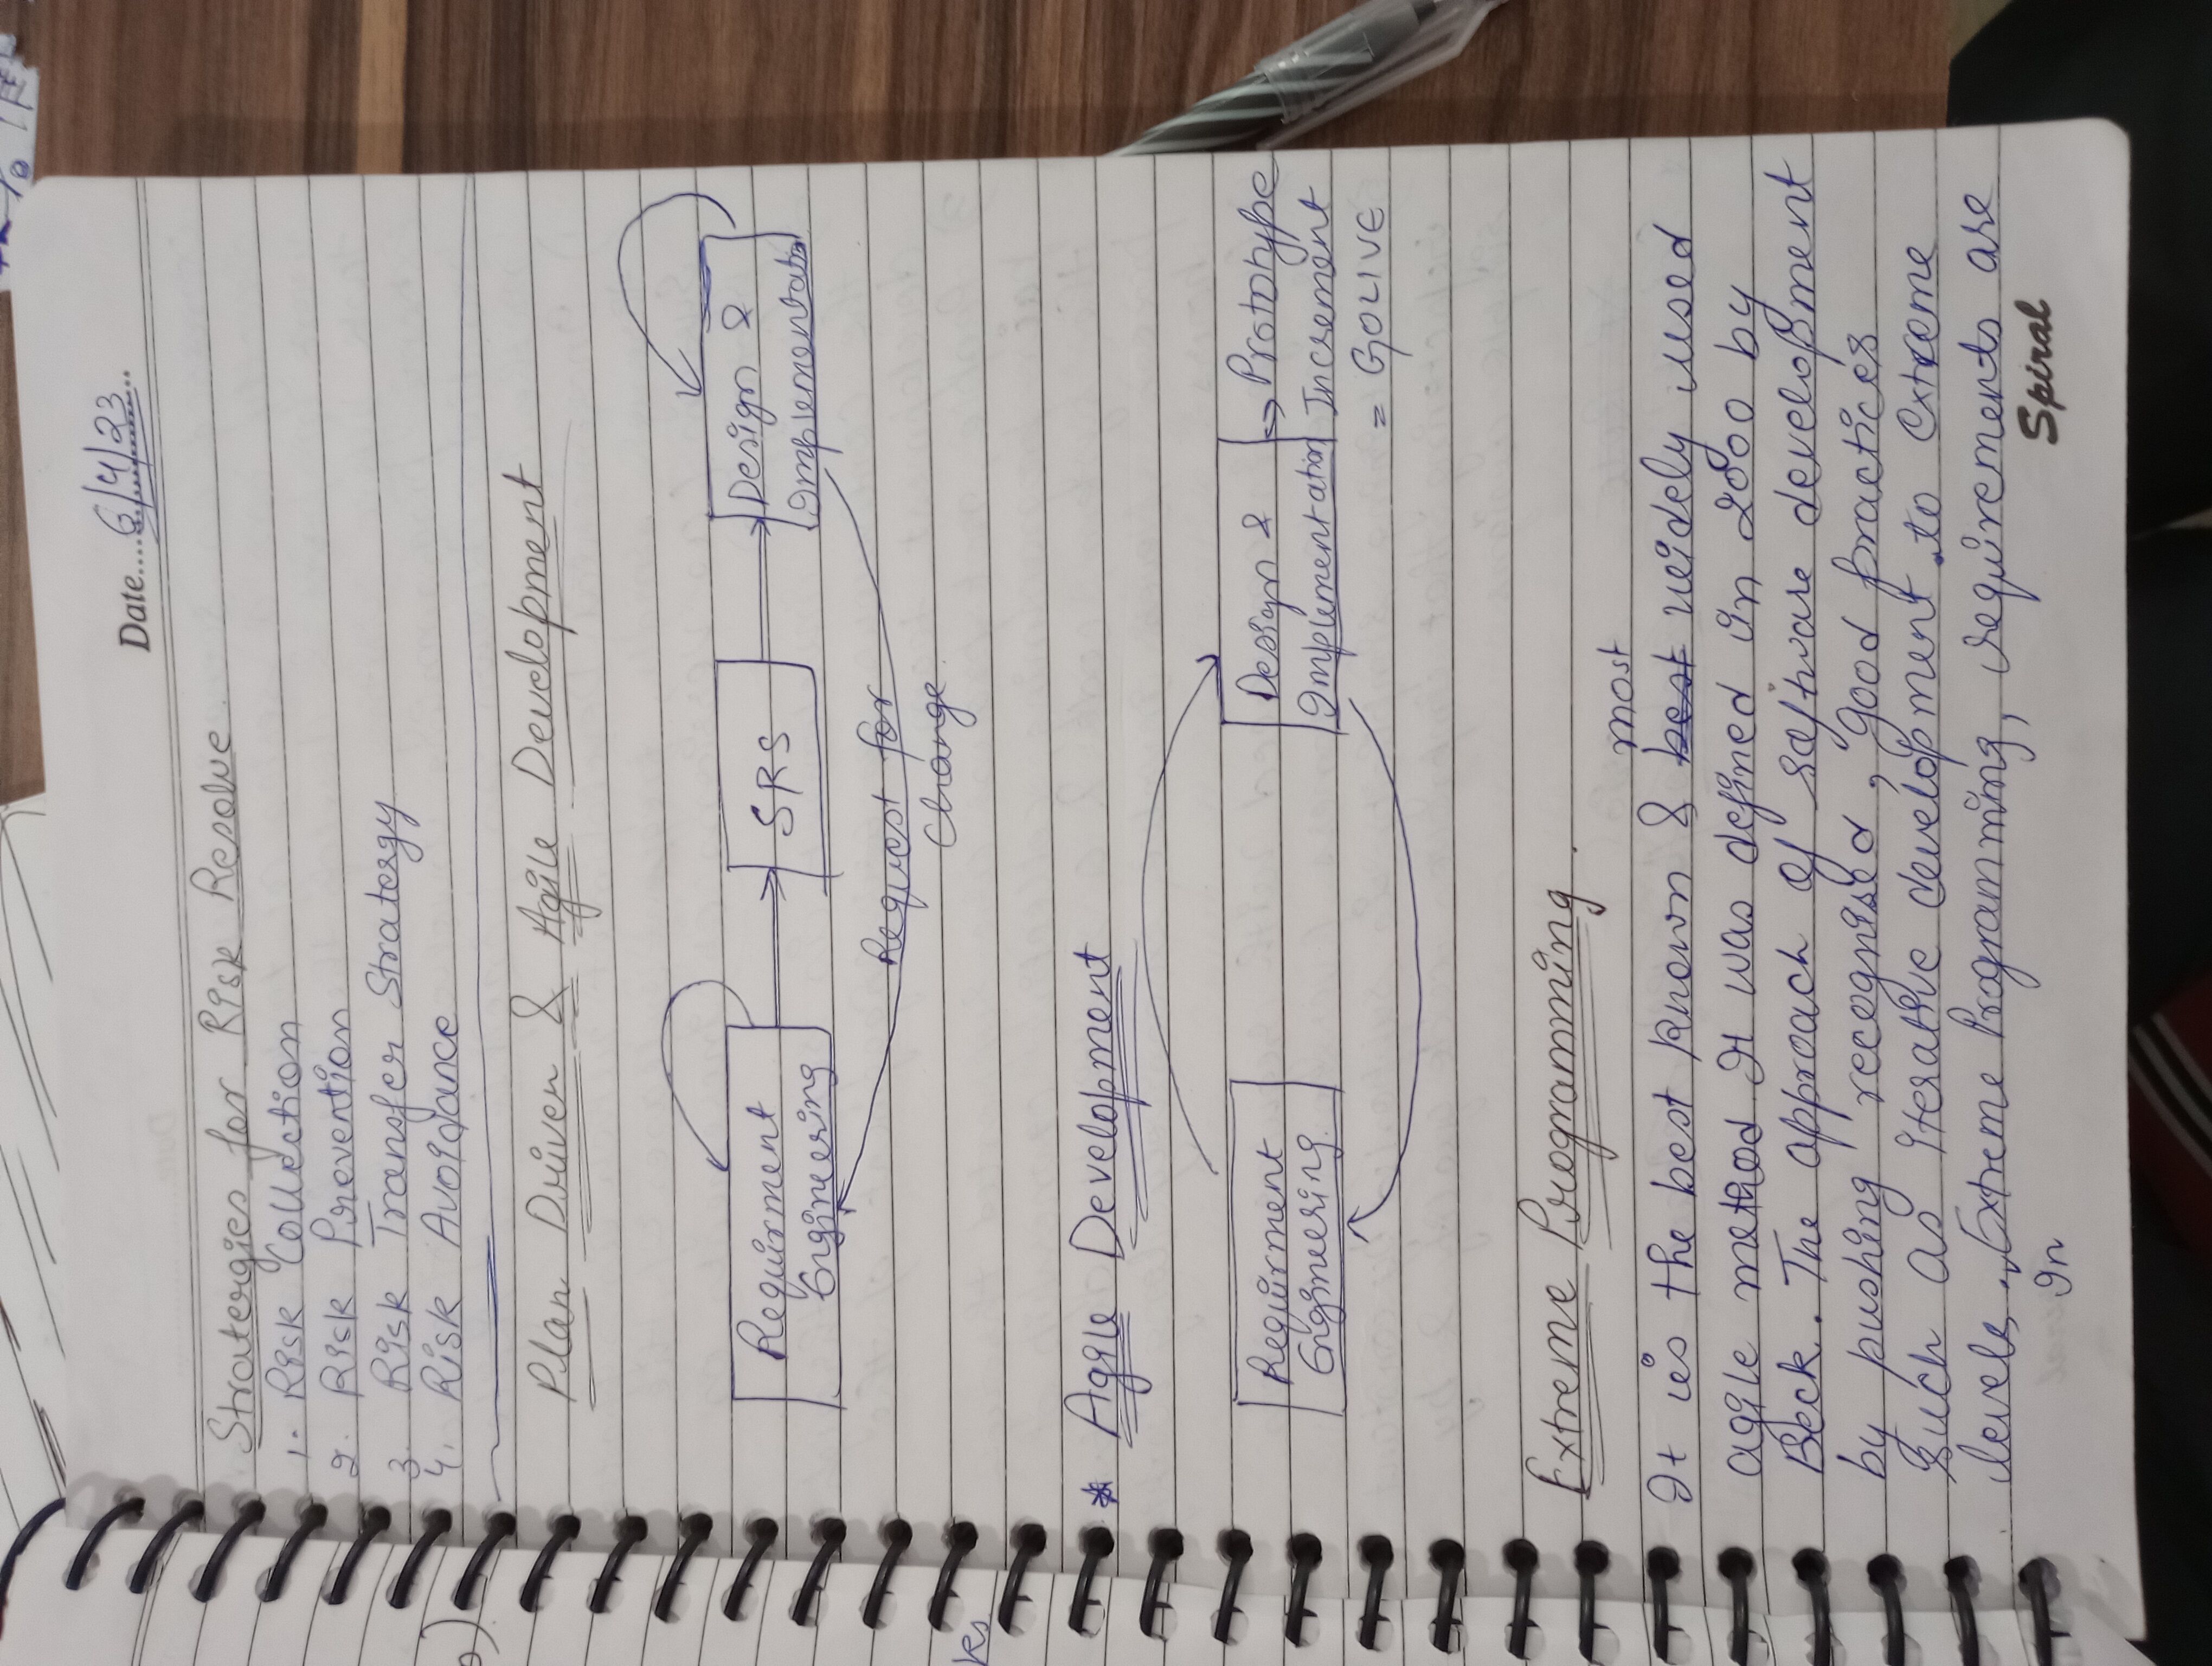 Date....6/4/23....
Strategies for Risk Resolve.
1. Risk Collection
2. Risk Prevention
3. Risk Transfer Stratergy
4. Risk Avoidance
Plan Driven & Agile Development
Requirment
Engineering
SRS
Design &
Implementation
Request for
Change.
* Agile Development
Requirment
Engineering
Design &
Implementation
Prototype
Increment
= GOLIVE
Extreme Programming.
most
It is the best known & best widely used
agile method It was defined in 2000 by
Beck. The approach of software development
by pushing recognised, good practices
such as iterative development to extreme
levels. Extreme Programming, requirements are
In
Spiral